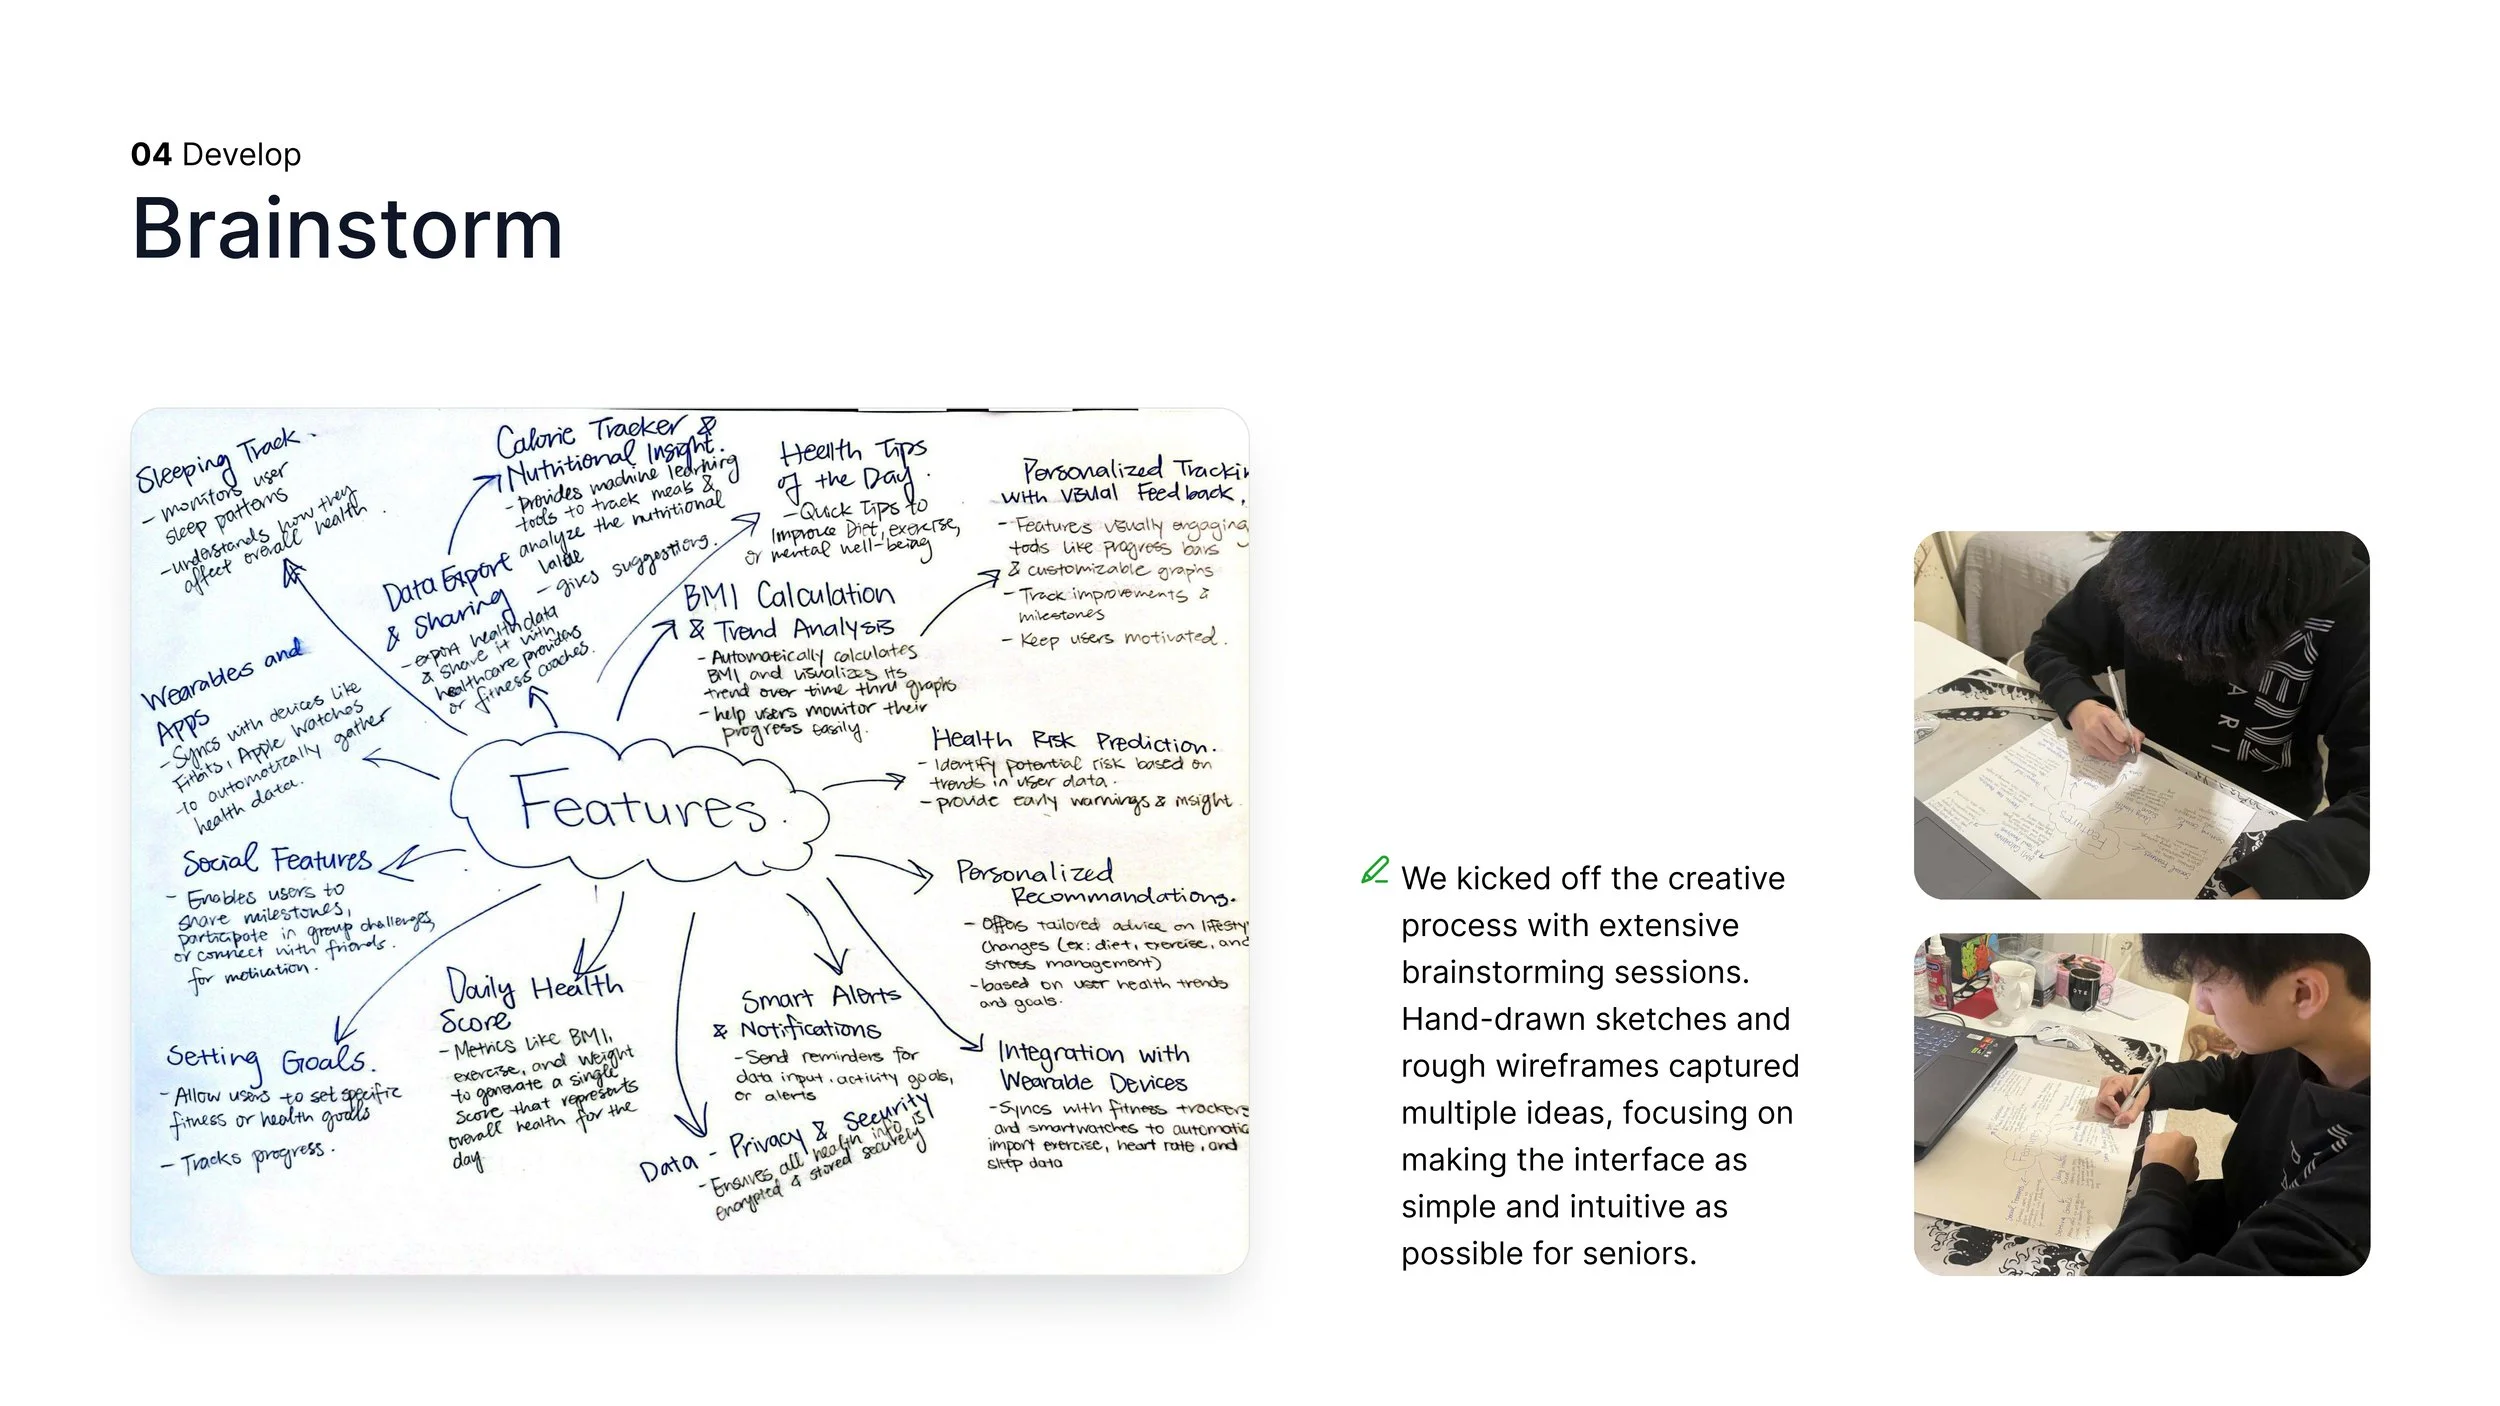 04 Develop
Brainstorm
Sleeping Track.
- monitors user
sleep patterns
- understands how they
affect overall health.
Calorie Tracker &
Nutritional Insight.
- provides machine learning
tools to track meals &
analyze the nutritional
value
- gives suggestions.
Health Tips
of the Day.
- Quick Tips to
Improve Diet, exercise,
or mental well-being
Personalized Trackin
with Visual Feedback.
- Features visually engaging
tools like progress bars
& customizable graphs
- Track improvements &
milestones
- Keep users motivated.
Data Export
& Sharing
- export health data
& share it with
healthcare providers
or fitness coaches.
BMI Calculation
& Trend Analysis
- Automatically calculates
BMI and visualizes its
trend over time thru graphs
- help users monitor their
progress easily.
Wearables and
Apps
- Syncs with devices like
Fitbits, Apple Watches
- to automatically gather
health data.
Features.
Health Risk Prediction.
- Identify potential risk based on
trends in user data.
- provide early warnings & insight
Social Features
- Enables users to
share milestones,
participate in group challenges,
or connect with friends.
for motivation.
Personalized
Recommandations.
- Offers tailored advice on lifesty
changes (ex: diet, exercise, and
stress management)
- based on user health trends
and goals.
Setting Goals.
- Allow users to set specific
fitness or health goals
- Tracks progress.
Daily Health
Score
- Metrics like BMI,
exercise, and weight
to generate a single
score that represents
overall health for the
day
Smart Alerts
& Notifications
- Send reminders for
data input, activity goals,
or alerts
Data - Privacy & Security
- Ensures all health info is
encrypted & stored securely
Integration with
Wearable Devices
- Syncs with fitness trackers
and smartwatches to automatic
import exercise, heart rate, and
sleep data
We kicked off the creative
process with extensive
brainstorming sessions.
Hand-drawn sketches and
rough wireframes captured
multiple ideas, focusing on
making the interface as
simple and intuitive as
possible for seniors.